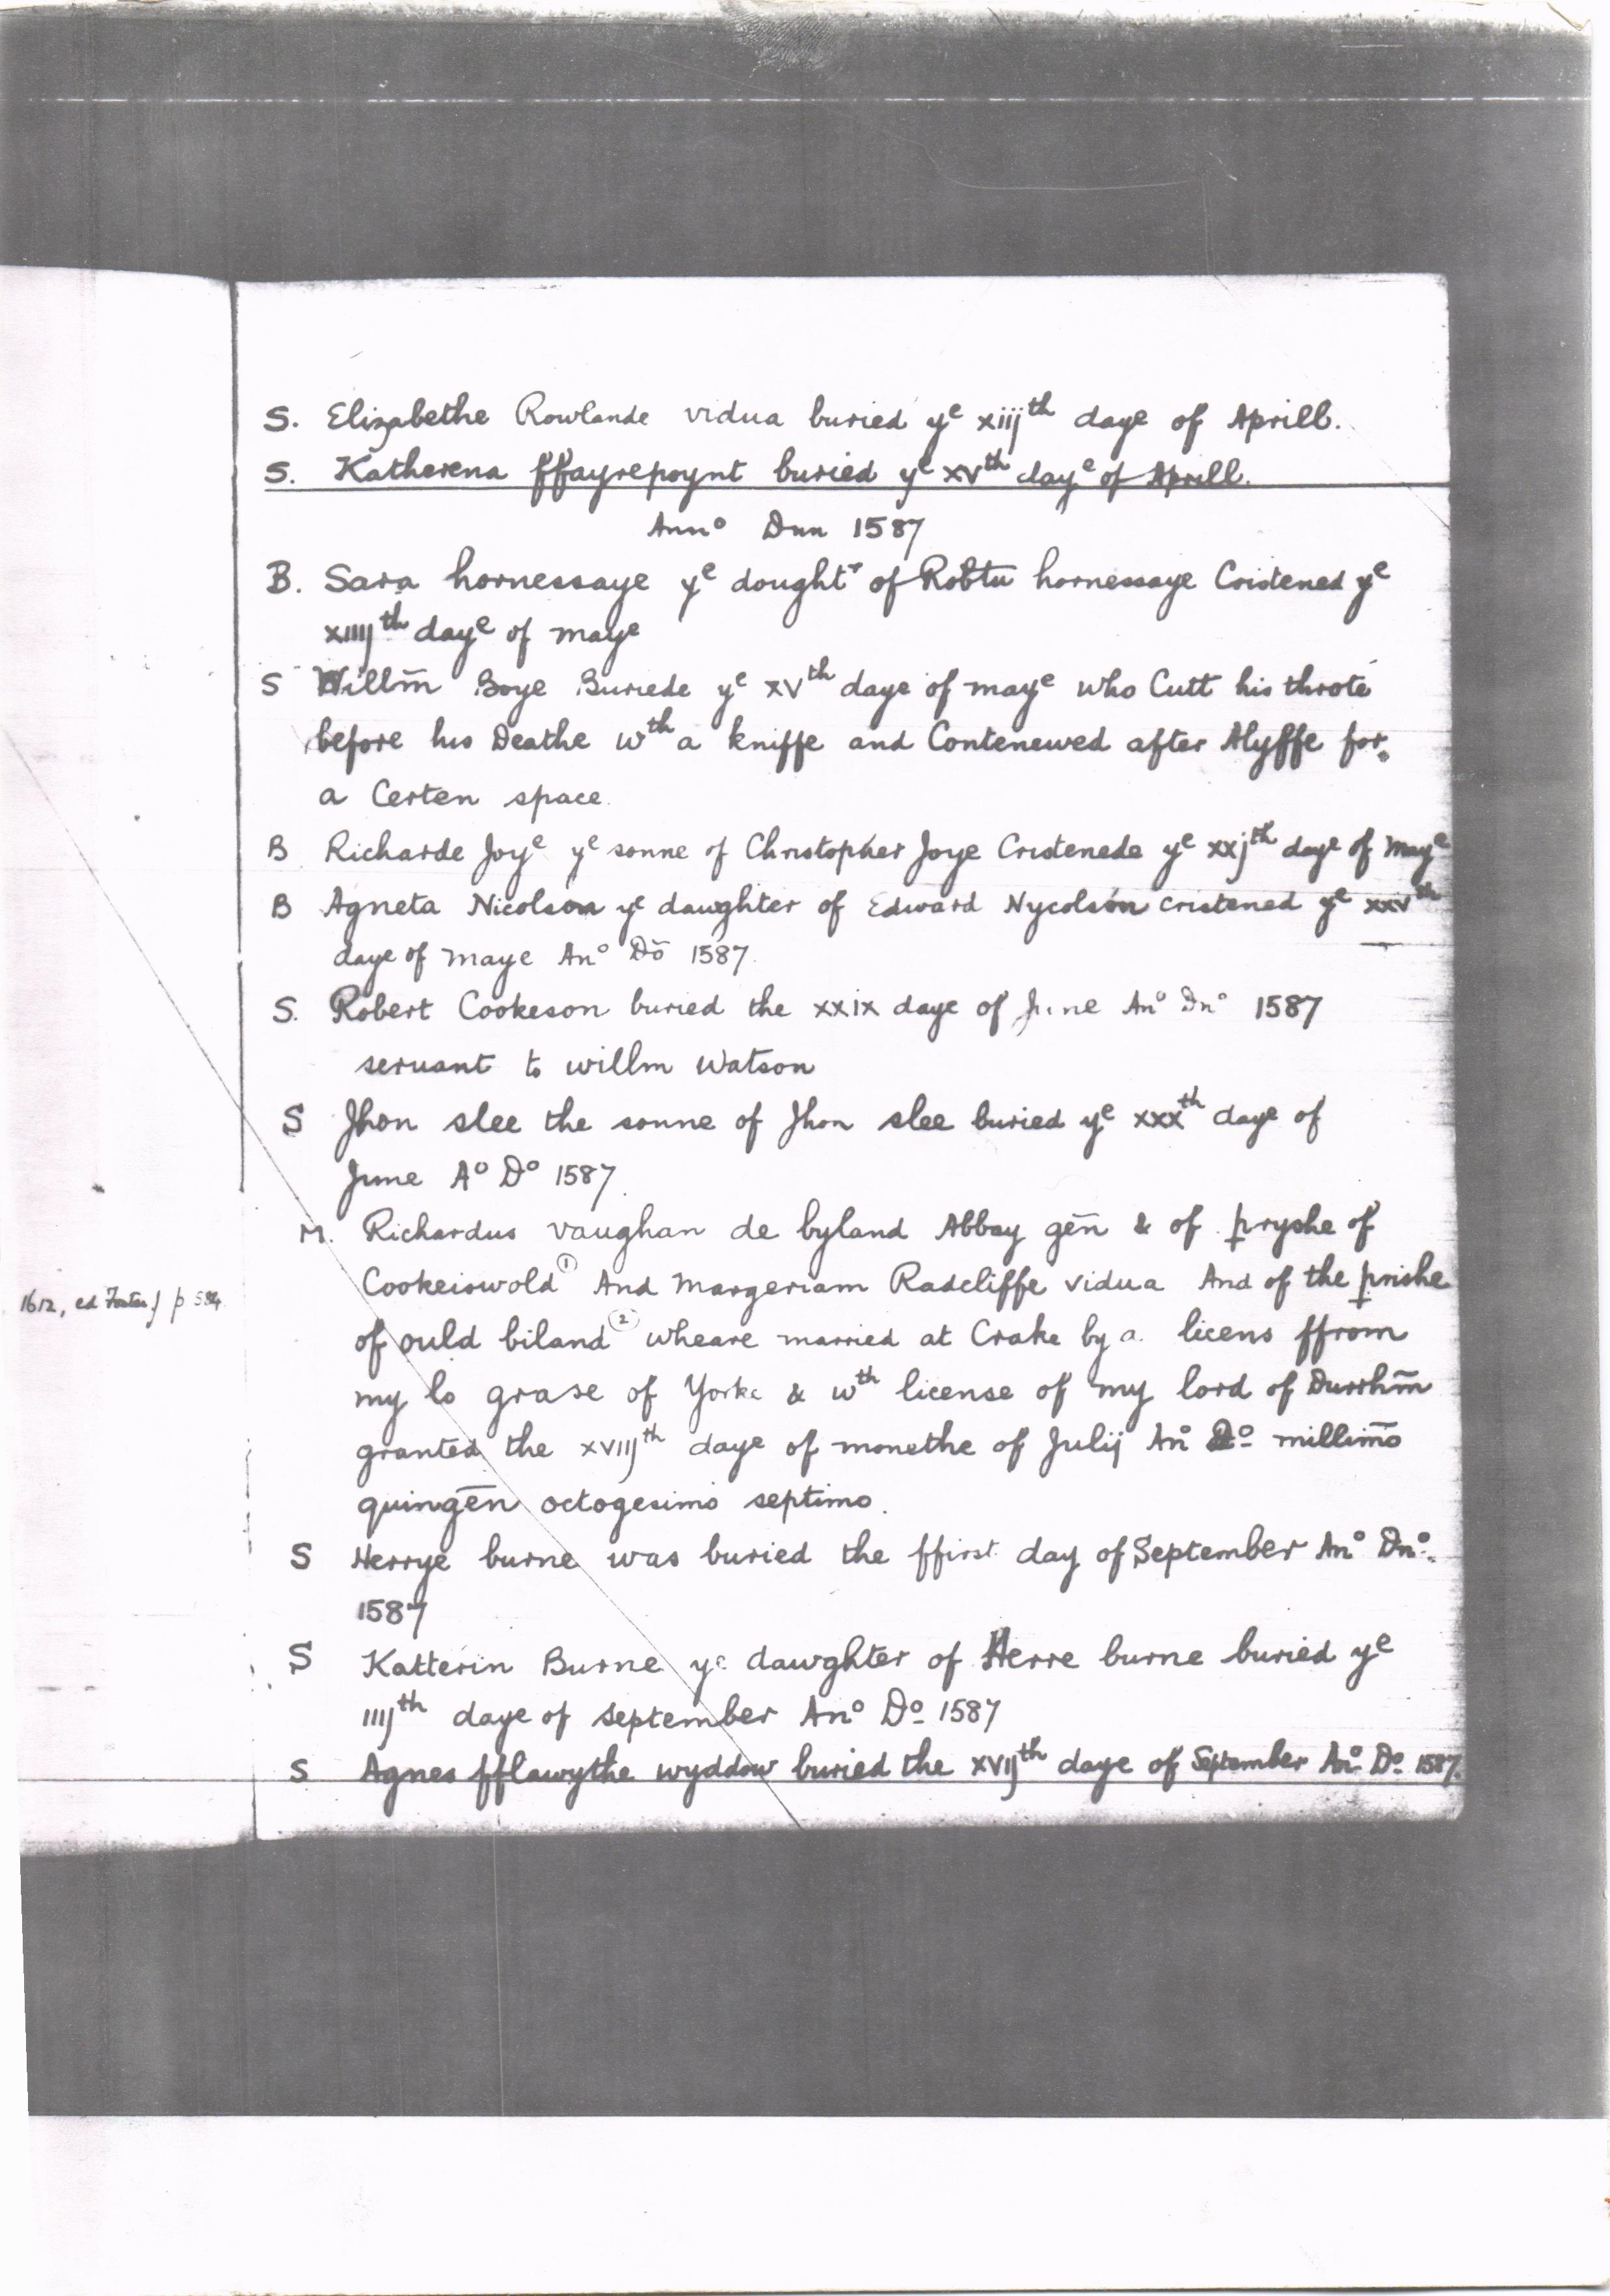 S. Elizabethe Rowlande vidua buried yᵉ xiijᵗʰ daye of Aprill.
S. Katherena ffayrepoynt buried yᵉ xvᵗʰ dayᵉ of Aprill.
Annº Dnn 1587
B. Sara hornessaye yᵉ doughtʳ of Robtu hornessaye Cristened yᵉ
xiiijᵗʰ dayᵉ of maye
S Willm̄ Boye Buriede yᵉ xvᵗʰ daye of mayᵉ who Cutt his throte
before his Deathe wᵗʰ a kniffe and Contenewed after Alyffe for
a Certen space.
B Richarde Joyᵉ yᵉ sonne of Christopher Joye Cristenede yᵉ xxjᵗʰ daye of Mayᵉ
B Agneta Nicolson yᵉ daughter of Edward Nycolson cristened yᵉ xxvᵗʰ
daye of maye Anº Dō 1587.
S. Robert Cookeson buried the xxix daye of June Anº Dnº 1587
seruant to willm Watson
S Jhon slee the sonne of Jhon slee buried yᵉ xxxᵗʰ daye of
June Aº Dº 1587.
M. Richardus vaughan de byland Abbay gēn & of ꝑryshe of
Cookeiswold ① And Margeriam Radcliffe vidua And of the ꝑrishe
1612, ed Foster) p 584
of ould biland ② wheare married at Crake by a licens ffrom
my lo grase of Yorke & wᵗʰ license of my lord of Durrhm̄
granted the xviijᵗʰ daye of monethe of Julij Anº Dº millim̄o
quingēn octogesimo septimo.
S Herrye burne was buried the ffirst day of September Anº Dnº.
1587
S Katterin Burne ye dawghter of Herre burne buried yᵉ
iiijᵗʰ daye of september Anº Dº 1587
S Agnes fflawythe wyddow buried the xvijᵗʰ daye of September Anº Dº 1587.